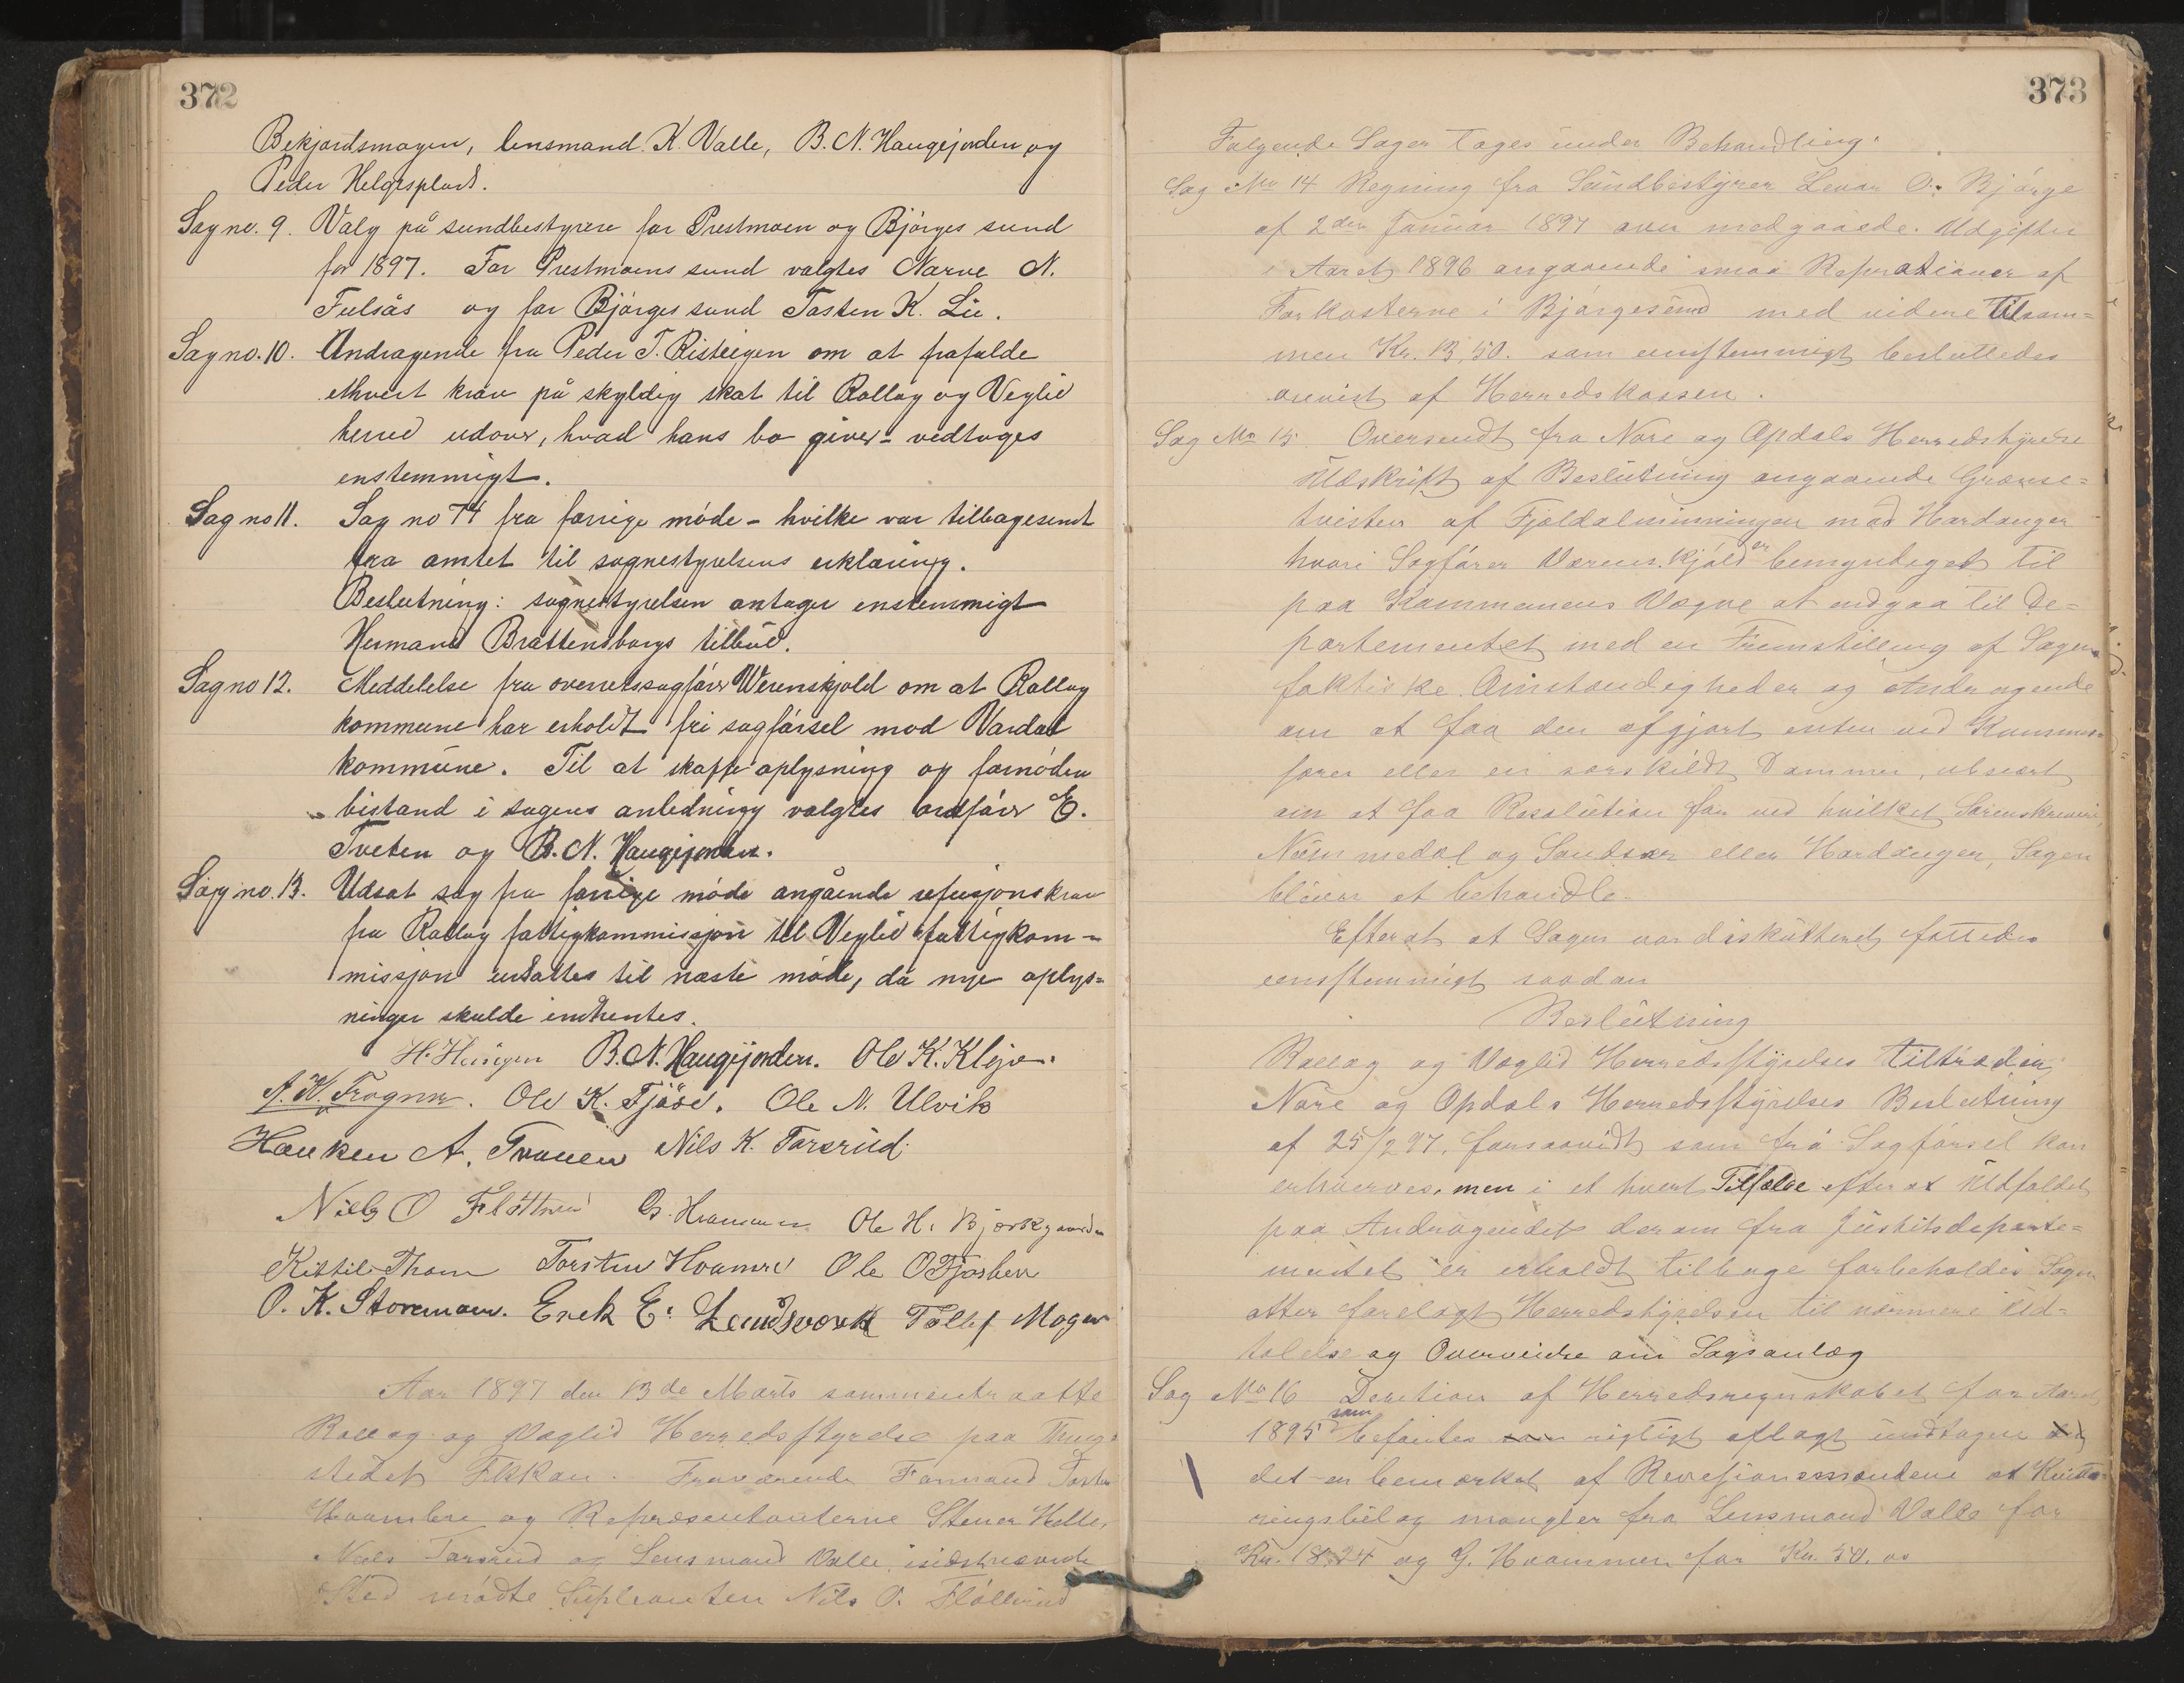 372
Bekjordsmogen, lensmand K. Valle, B. N. Haugejorden og
Peder Helgesplads.
Sag no. 9. Valg på sundbestyrere for Prestmoen og Bjørges sund
for 1897. For Prestmoens sund valgtes Narve N.
Fulsås og for Bjørges sund Tosten K. Lie.
Sag no. 10. Andragende fra Peder T. Risteigen om at frafalde
ethvert krav på skyldig skat til Rollag og Veglid
herred udover, hvad hans bo giver - vedtoges
enstemmigt.
Sag no 11. Sag no 74 fra forrige møde - hvilke var tilbagesendt
fra amtet til sognestyrelsens erklæring.
Beslutning: sognestyrelsen antager enstemmigt
Hermand Brattensborgs tilbud.
Sag no 12. Meddelelse fra overretssagfører Werenskjold om at Rollag
kommune har erholdt fri sagførsel mod Vardal
kommune. Til at skaffe oplysning og fornøden
bistand i sagens anledning valgtes ordfører E.
Tveten og B. N. Haugejorden.
Sag no. 13. Udsat sag fra forrige møde angående refusjonskrav
fra Rollag fattigkommissjon til Veglid fattigkom-
missjon udsattes til næste møde, da nye oplys-
ninger skulde indhentes.
B. N. Haugejorden. Ole K. Kleja.
A. K. Frogner. Ole K. Fjøse. Ole N. Ulvik
Haaken A. Traaen Nils K. Tarsrud.
Niels O Fløttrud G. Hvammen Ole H. Bjerkgaarden
Kittil Thom Torsten Hvamre Ole O Fjosben
O. K. Storemoen. Erek E. Landsverk Tollef Mogen
Aar 1897 den 13de Marts sammentraatte
Rollag og Væglid Herredsstyrelse paa Thing-
stedet Ekkan. Fraværende Formand Tosten
og Repræsentanterne Stener Helle,
Niels Tarsrud og Lensmand Valle, i sidstnævnte
Sted mødte Supleanten Nils O. Fløttrud
373
Følgende Sager toges under Behandling:
Sag No 14 Regning fra Sundbestyrer Levor O. Bjørge
af 2den Januar 1897 over medgaaede Udgifter
i Aaret 1896 angaaende smaa Reprationer af
Farkosterne i Bjørgesund med videre tilsam-
men Kr. 13,50. som eenstemmigt besluttedes
anvist af Herredskassen.
Sag No 15. Oversendt fra Nore og Opdals Herredstyrelse
Udskrift af Beslutning angaaende Grænse-
tvisten af Fjeldalminningen mod Hardanger
hvori Sagfører Værenskjold er bemyndiget til
paa Kommunens Vegne at indgaa til De-
partementet med en Fremstilling af Sagens
faktiske Omstændigheder og Andragende
om at faa den afgjort enten ved Kommis-
særer eller en særskildt Dommer, ubeiært
om at faa Resolution for ved hvilket Sorenskriveri,
Nummedal og Sandsvær eller Hardanger, Sagen
bliver at behandle.
Efterat at Sagen var diskutteret fattedes
eenstemmigt saadan
Beslutning
Rollag og Væglid Herredsstyrelse tiltræder
Nore og Opdals Herredsstyrelses Beslutning
af 25/2 97. forsaavidt som fri Sagførsel kan
erhverves, men i et hvert Tilfælde efter at Udfaldet
paa Andragendet derom fra Justitsdeparte-
mentet er erholdt tilbage forbeholdes Sagen
atter forelagt Herredstyrelsen til nærmere Ud-
talelse og Overveielse om Sagsanlæg
Sag No 16 Desition af Herredsregnskabet for Aaret
1895 som befantes rigtigt aflagt undtagen
det er bemærket af Revesionsmændene at Kvitte-
ringsbilag mangler fra Lensmand Valle for
Kr. 18,24 og G. Hvammen for Kr. 50.00